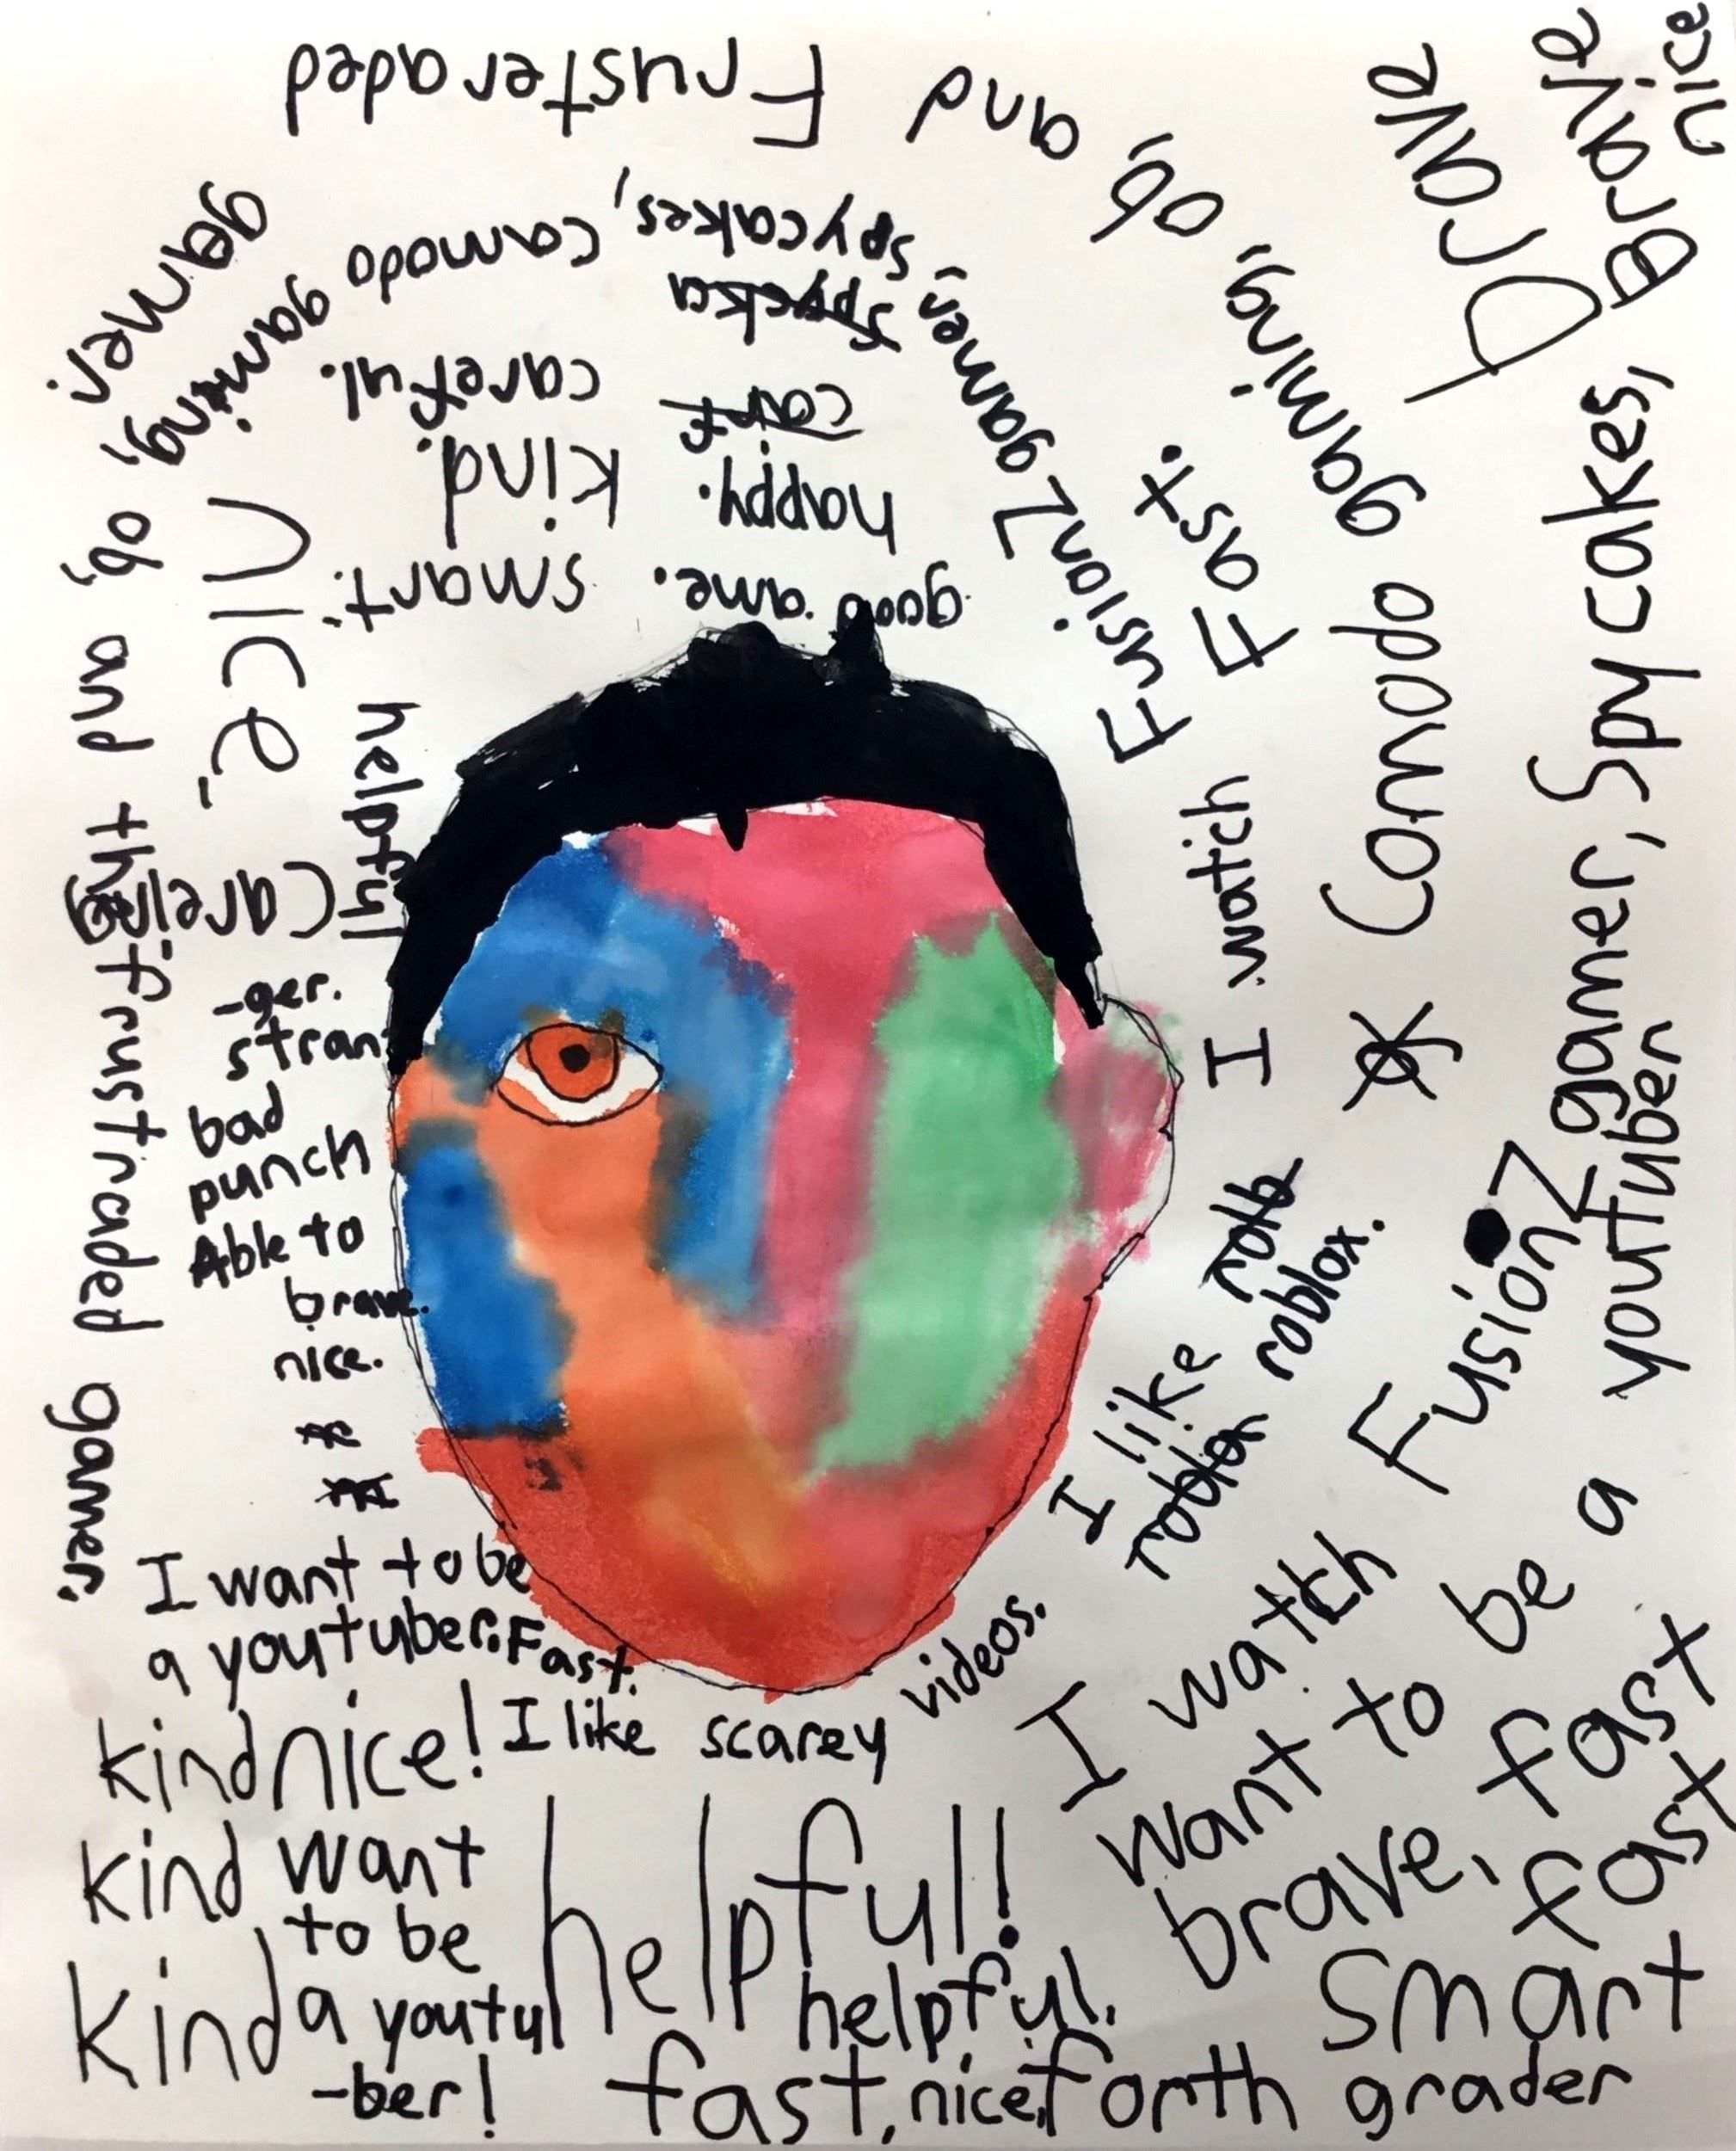 Frusteraded
and
ob,
Comodo gaming,
I watch
Fusionz gamer,
spycakes,
camodo
gaming,
ob,
and the frustraded gamer.
gamer.
careful.
kind.
happy.
smart.
good ame.
Nice.
helpful
Fast.
Brave
Brave
nice
I watch
Fusionz gamer, Spycakes,
-ger.
stran
bad
punch
Able to
brave.
nice.
I like
roblox.
I want to be
a youtuber. Fast.
I like scarey videos.
kind nice!
kind want
to be
kind a youtu
-ber!
helpful!
helpful.
want to be a youtuber
brave, fast
fast
smart
fast, nice, forth grader